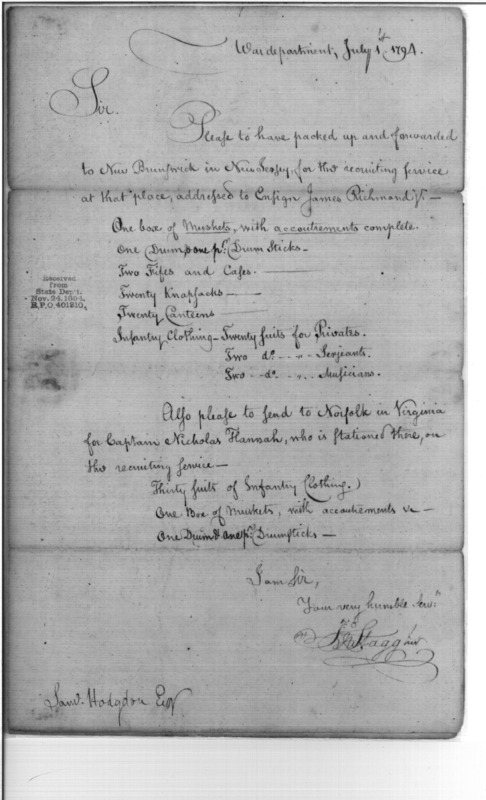 War department, July 1st 1794.
Sir.
Please to have packed up and forwarded
to New Brunswick in New Jersey, for the recruiting service
at that place, addressed to Ensign James Richmond Jr. —
One box of Muskets, with accoutrements complete.
One Drum & one pr. Drum Sticks —
Two Fifes and Cases. —
Twenty Knapsacks —
Twenty Canteens —
Infantry Clothing — Twenty suits for Privates.
Two do. - - " - Serjeants.
Two - do. - " - - Musicians.
Received
from
State Dept.
Nov. 24, 1894,
R.P.O. 401910,
Also please to send to Norfolk in Virginia
for Captain Nicholas Hannah, who is stationed there, on
the recruiting service —
Thirty suits of Infantry Clothing.
One Box of Muskets, with accoutrements &c —
One Drum & one pr. Drumsticks —
I am Sir,
Your very humble Servt.
Jno Stagg Junr
Saml. Hodgdon Esqr